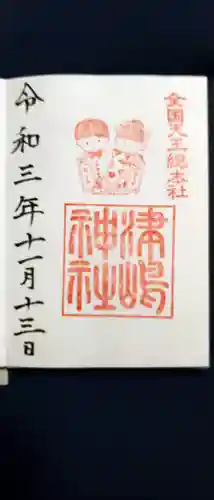 全国天王総本社
津嶋
神社
令和三年十一月十三日